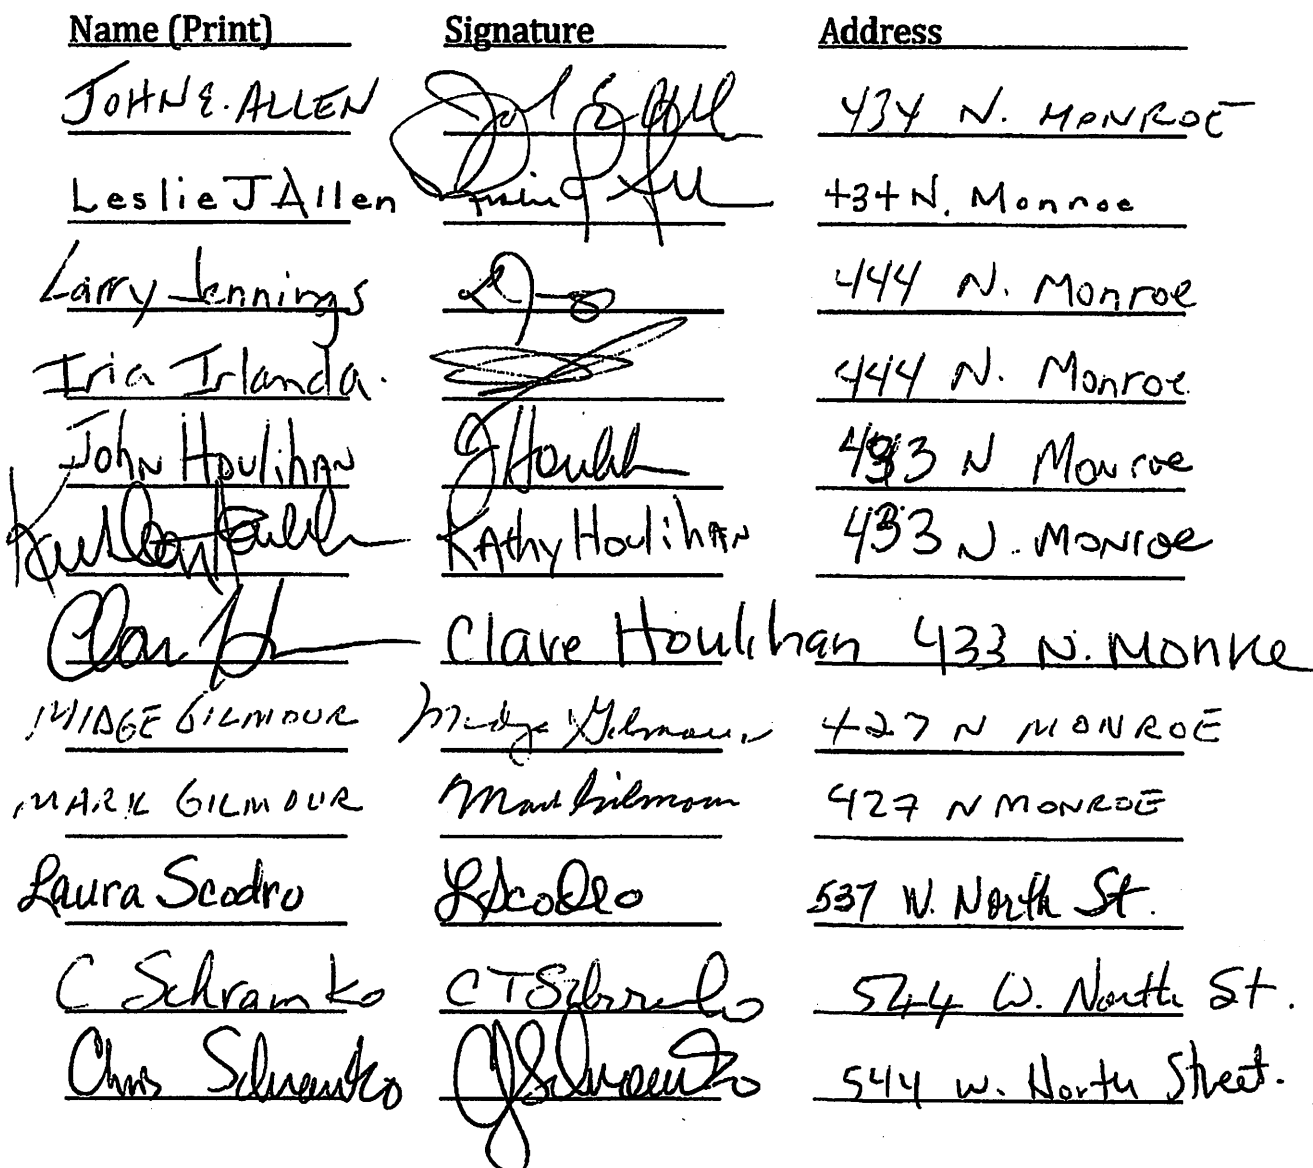 Name (Print) Signature Address
JOHN E. ALLEN John E Allen 434 N. MONROE
Leslie J Allen Leslie J Allen 434 N. Monroe
Larry Jennings 444 N. Monroe
Iria Irlanda. 444 N. Monroe
John Houlihan J Houlihan 433 N Monroe
Kathleen Houlihan Kathy Houlihan 433 N. Monroe
Clare Clare Houlihan 433 N. Monroe
MIDGE GILMOUR Midge Gilmour 427 N MONROE
MARK GILMOUR Mark Gilmour 427 N MONROE
Laura Scodro L Scodro 537 W. North St.
C Schramko C T Schramko 544 W. North St.
Chris Schramko C J Schramko 544 W. North Street.